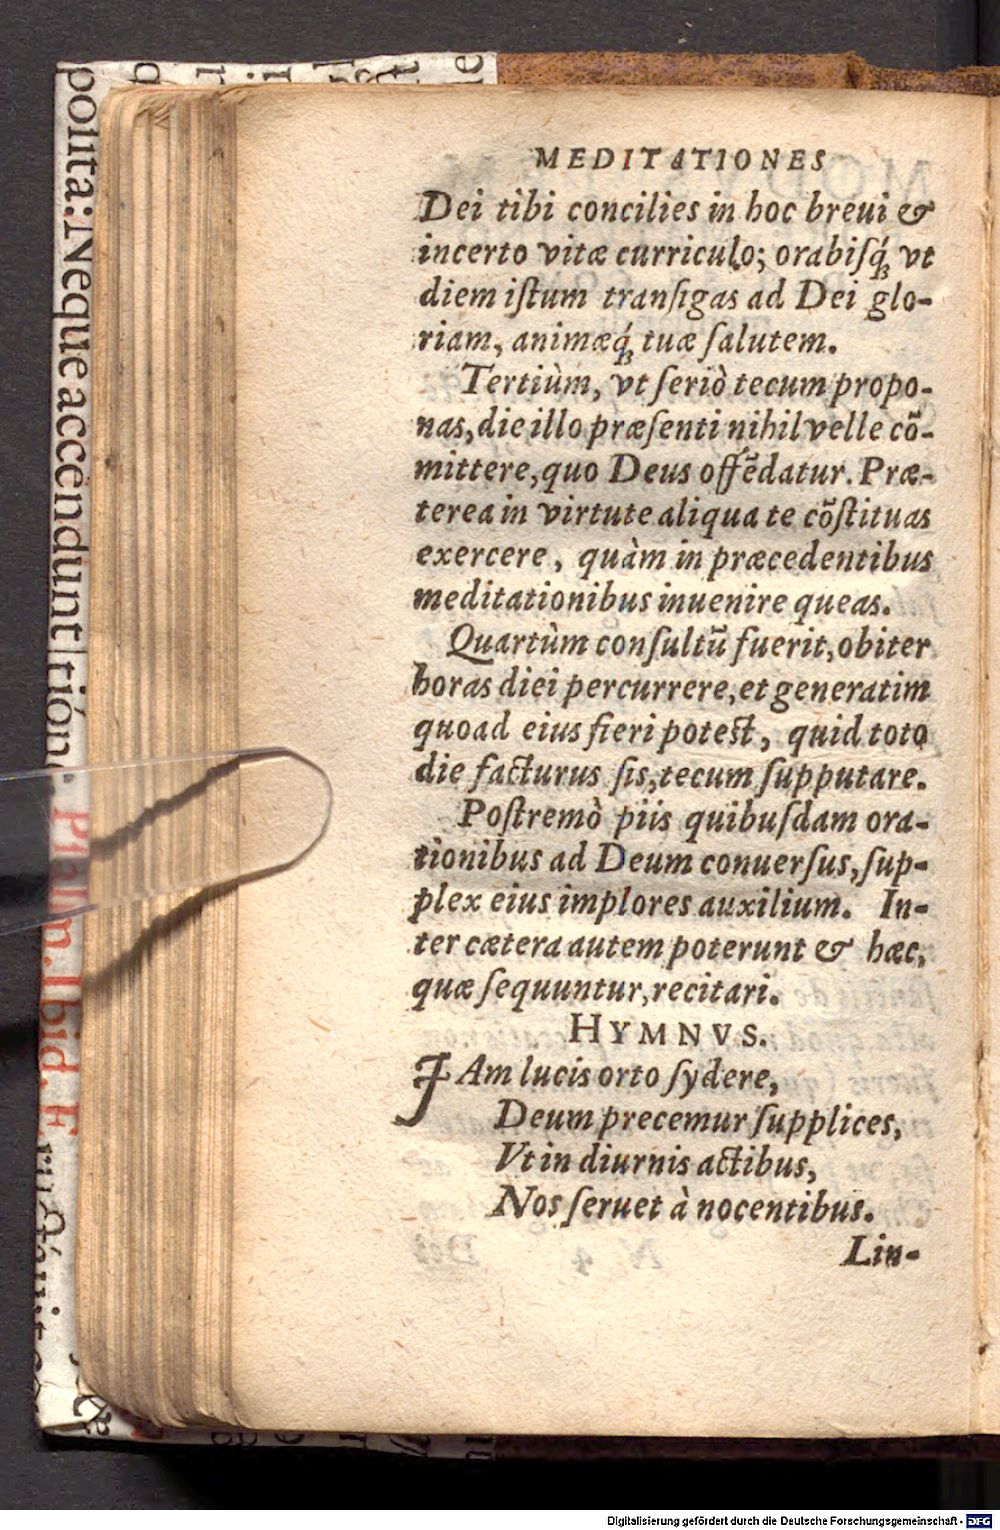 MEDITATIONES
Dei tibi concilies in hoc breui &
incerto vitæ curriculo; orabiſq́ꝫ vt
diem iſtum tranſigas ad Dei glo-
riam, animæq́ꝫ tuæ ſalutem.
Tertiùm, vt ſeriò tecum propo-
nas, die illo præſenti nihil velle cõ-
mittere, quo Deus offẽdatur. Præ-
terea in virtute aliqua te cõſtituas
exercere, quàm in præcedentibus
meditationibus inuenire queas.
Quartùm conſultũ fuerit, obiter
horas diei percurrere, et generatim
quoad eius fieri poteſt, quid toto
die facturus ſis, tecum ſupputare.
Poſtremò piis quibuſdam ora-
tionibus ad Deum conuerſus, ſup-
plex eius implores auxilium. In-
ter cætera autem poterunt & hæc,
quæ ſequuntur, recitari.
HYMNVS.
IAm lucis orto ſydere,
Deum precemur ſupplices,
Vt in diurnis actibus,
Nos ſeruet à nocentibus.
Lin-
polita: Neque accendunt
Pſalm. Ibid.
Digitalisierung gefördert durch die Deutsche Forschungsgemeinschaft - DFG